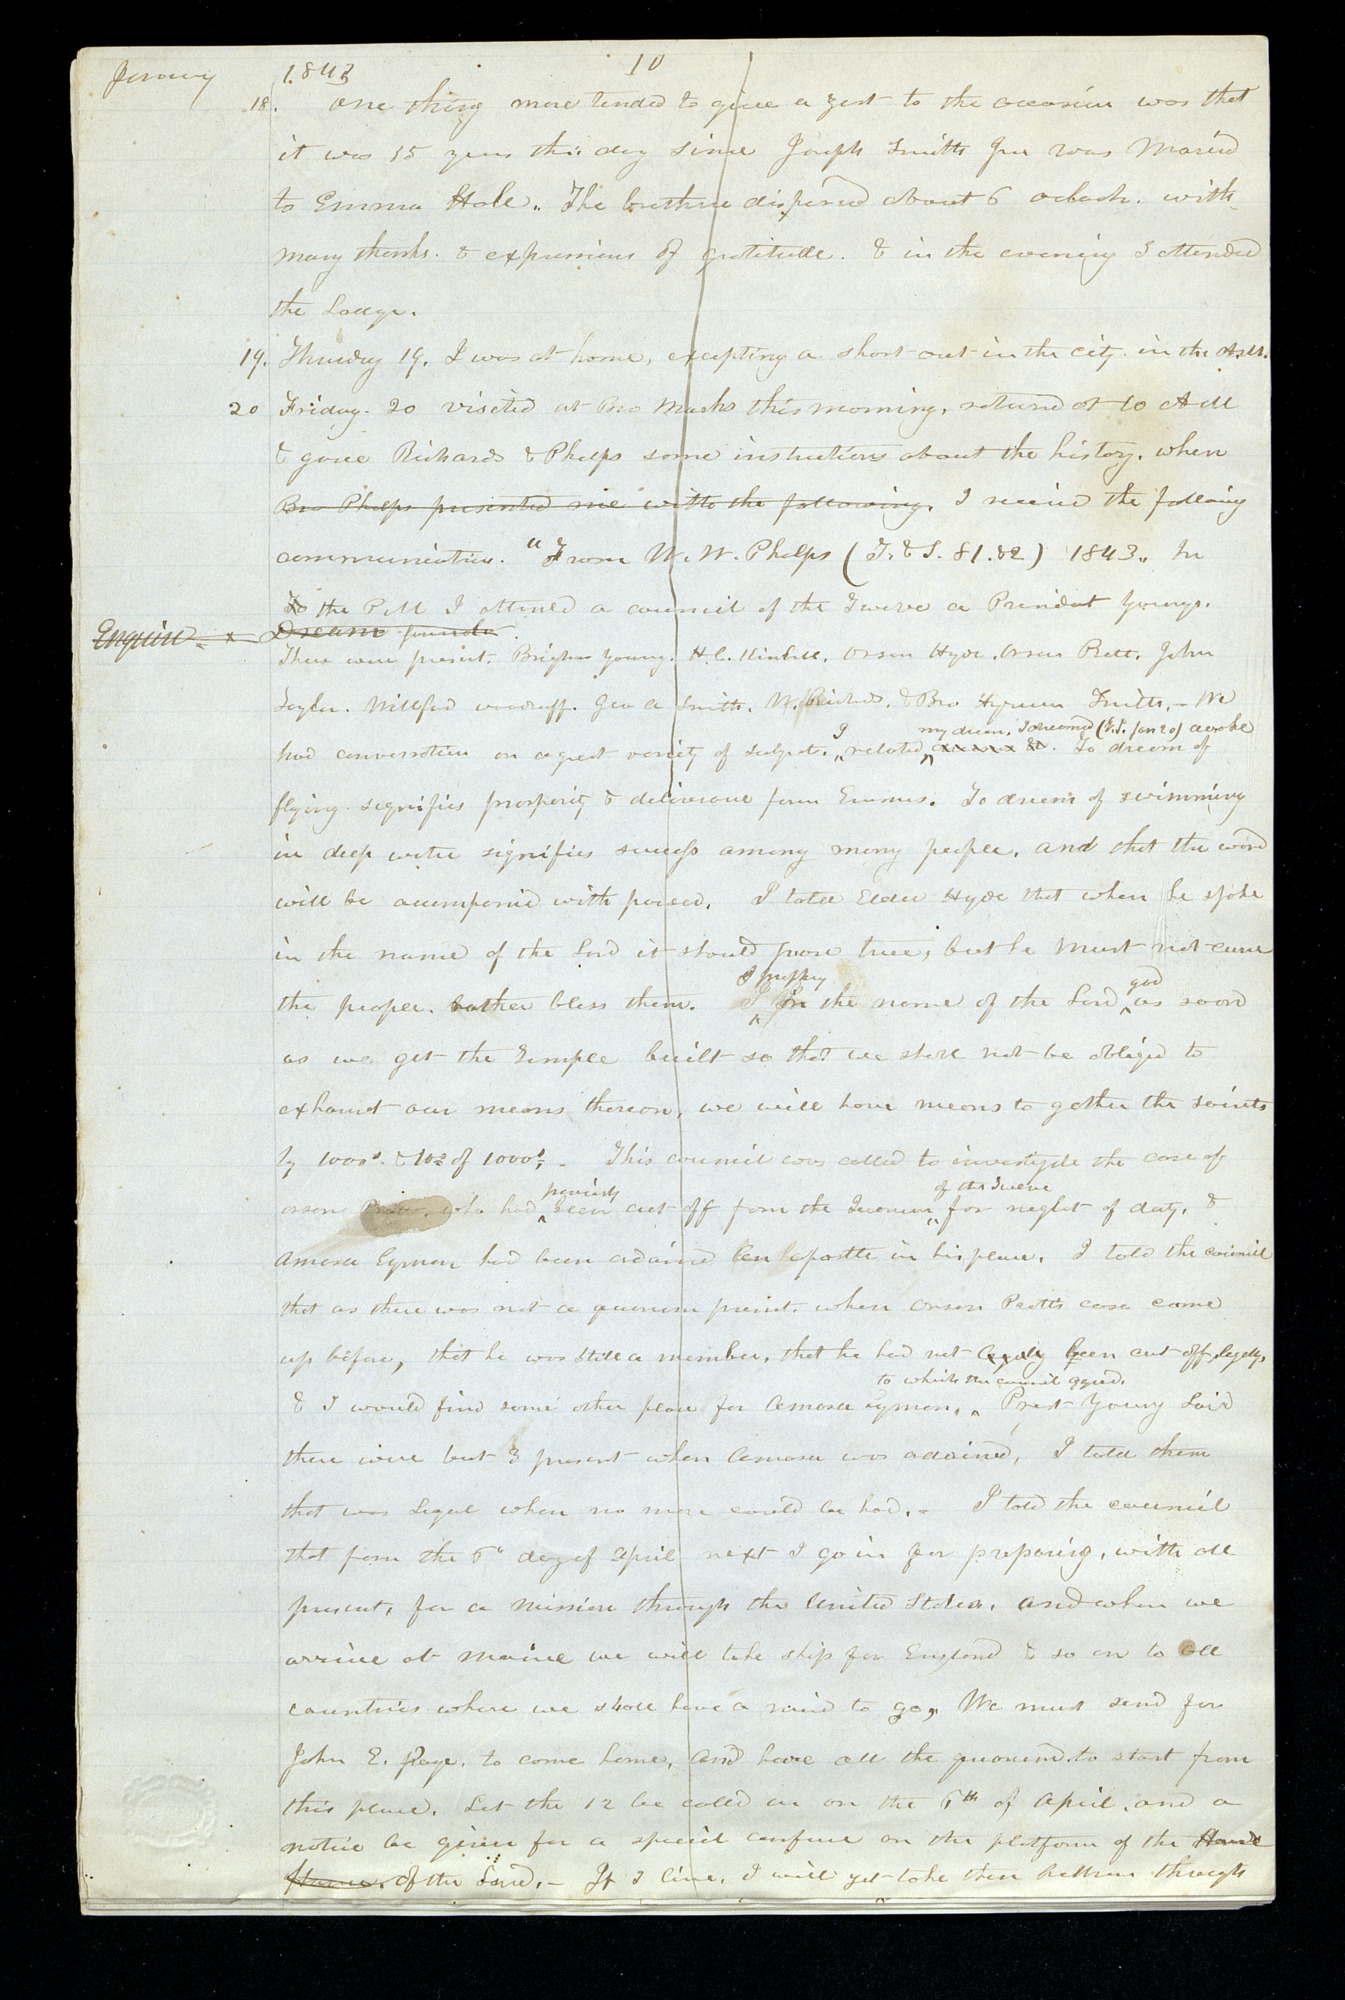 January 1843 10
18. one thing more tended to give a zest to the occasion was that
it was 15 years this day since Joseph Smith Jun was Maried
to Emma Hale. The brethren dispersed about 6 oclock. with
many thanks. & expressions of gratitude. & in the evening I attended
the Lodge.
19. Thursday 19. I was at home, excepting a short out in the city. in the A.M.
20 Friday. 20 visited at Bro Marks this morning, returned at 10 A M
& gave Richards & Phelps some instructions about the history. when
Bro Phelps presented me with the following. I received the following
communication. "From W. W. Phelps (T. & S. 81. 82) 1843" In
To the P.M I attended a council of the Twelve a President Youngs.
Enquire x Dream
There were present. Brigham Young. H. C. Kimball. Orson Hyde. Orson Pratt. John
Taylor. Willford woodruff. Geo A Smith. W. Richards. & Bro Hyrum Smith,- We
I my dream, I dreamed (Jan 20) awoke
had conversation on a great variety of subjects. related To dream of
flying signifies prosperity & deliverance from Enemies. To dream of swimming
in deep water signifies success among many people, and that the word
will be accompanied with power. I told Elder Hyde that when he spoke
in the name of the Lord it should prove true, but he Must not curse
I prophesy god
the people. rather bless them. I In the name of the Lord as soon
as we get the Temple built so that we shall not be obliged to
exhaust our means thereon, we will have means to gather the saints
by 1000s. & 10s of 1000s, - This council was called to investigate the case of
previously of the Twelve
orson Pratt, who had been cut off from the Quorum for neglect of duty, &
Amasa Lyman had been ordained an apostle in his place, I told the council
that as there was not a quorum present, when Orson Pratts case came
up before, that he was still a member, that he had not legally been cut off, legally,
to which the council agreed.
& I would find some other place for Amasa Lyman, Prest Young said
there were but 3 present when Amasa was ordained, I told them
that was Legal when no more could be had.- I told the council
that from the 6th day of April next I go in for preparing, with all
present, for a mission through the United States. and when we
arrive at Maine we will take ship for England & so on to all
countries where we shall have a mind to go, We must send for
John E. Page, to come home, and have all the quorum to start from
this place. Let the 12 be called in on the 6th of April, and a
notice be given for a special conference on the platform of the House
of the Lord.- If I live, I will yet take these brethren through